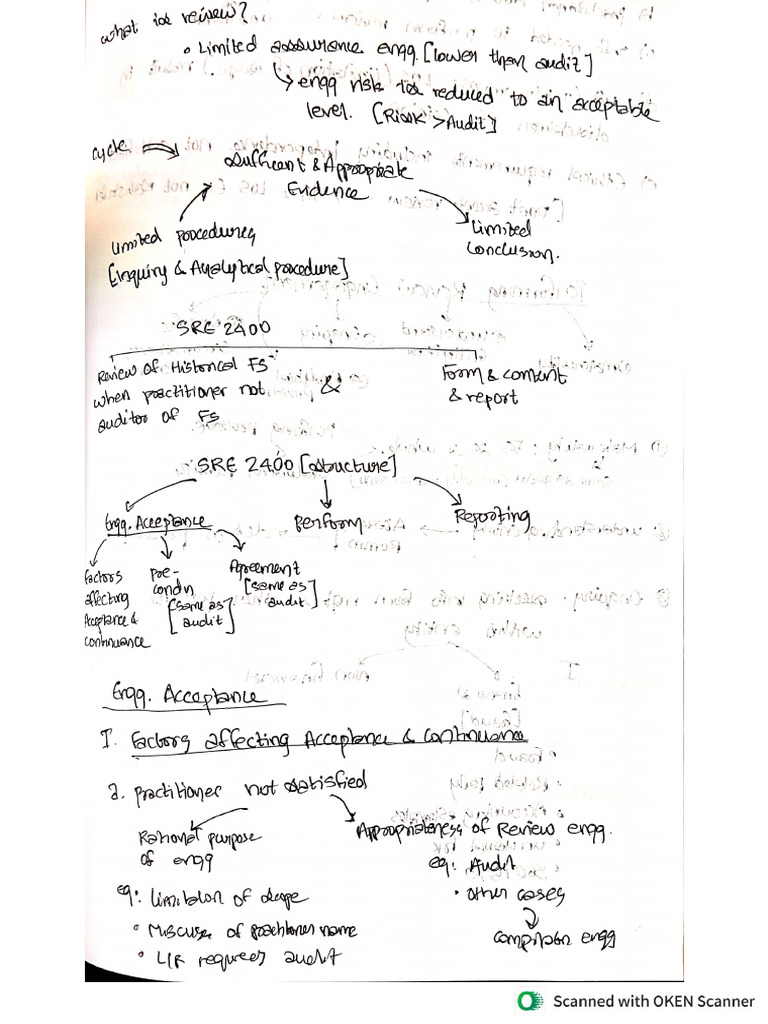 what is review?
• Limited assurance engg. [lower than audit]
↳ engg risk is reduced to an acceptable
level. [Risk > Audit]
cycle
Sufficent & Appropriate
Evidence
Limited procedures
[inquiry & Analytical procedure]
Limited
conclusion.
SRE 2400
Review of Historical FS
when practitioner not
auditor of FS
&
Form & content
& report
SRE 2400 [structure]
Engg. Acceptance
Perform
Reporting
factors
affecting
Acceptance &
continuance
pre-
condn
[same as
audit]
Agreement
[same as
audit]
Engg. Acceptance
I. Factors affecting Acceptance & Continuance
a. practitioner not satisfied
Rational purpose
of engg
eg: limitation of scope
• Misuse of practitioner name
• L/R requires audit
Appropriateness of Review engg.
eg: Audit
• other cases
compilation engg
Scanned with OKEN Scanner